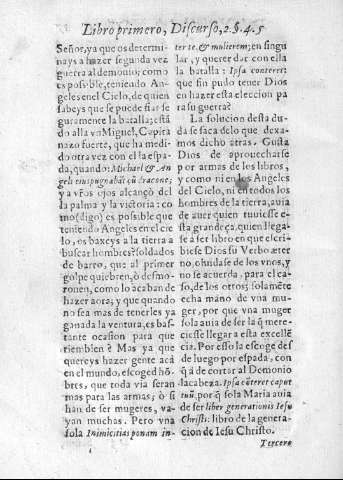 Libro primero, Discurso, 2. §. 4. 5
Señor, ya que os determi
nays a hazer segunda vez
guerra al demonio; como
es posible, teniendo An
geles en el Cielo, de quien
sabeys que se puede fiar se
guramente la batalla; està
do alla vn Miguel, Capita
nazo fuerte, que ha medi
do otra vez con el la espa
da, quando: Michael & An
geli eius pugnabãt, cũ dracone;
y a vr̃os ojos alcançò del
la palma y la victoria: co
mo (digo) es posible que
teniendo Angeles en el cie
lo, os baxeys a la tierra a
buscar hombres? soldados
de barro, que al primer
golpe quiebren, ò desmo
ronen, como lo acaban de
hazer aora; y que quando
no sea mas de tenerles ya
ganada la ventura, es bas-
tante ocasion para que
tiemblen è Mas ya que
quereys hazer gente acà
en el mundo, escoged hõ
bres, que toda via seran
mas para las armas; ò si
han de ser mugeres, va-
yan muchas. Pero vna
sola Inimicitias ponam in-
ter te, & mulierem; en singu
lar, y querer dar con ella
la batalla: Ipsa conteret:
que fin pudo tener Dios
en hazer esta eleccion pa
ra su guerra?
La solucion desta du-
da se saca de lo que dexa-
mos dicho atras. Gusta
Dios de aprouecharse
por armas de los libros,
y como ni en los Angeles
del Cielo, ni en todos los
hombres de la tierra, auia
de auer quien tuuiesse es-
ta grandeça, quien llegas-
se a ser libro en que escri-
biese Dios su Verbo æter
no, oluidase de los vnos, y
no se acuerda, para el ca-
so, de los otros; solamẽte
echa mano de vna mu-
ger, por que vna muger
sola auia de ser la q̃ mere-
ciesse llegar a esta excellẽ
cia. Por esso la escoge des
de luego por espada, con
q̃ à de cortar al Demonio
la cabeza. Ipsa cõteret caput
tuũ, por q̃ sola Maria auia
de ser liber generationis Iesu
Christi: libro de la genera-
cion de Iesu Christo.
Tercero